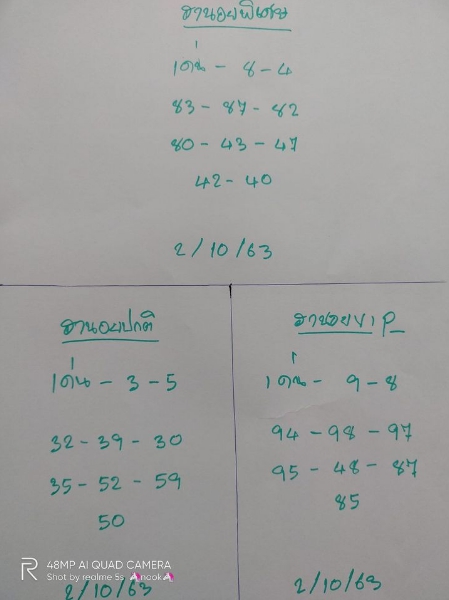 ฮานอยพิเศษ
เด่น - 8 - 4
83 - 87 - 82
80 - 43 - 47
42 - 40
2/10/63
ฮานอยปกติ
เด่น - 3 - 5
32 - 39 - 30
35 - 52 - 59
50
2/10/63
ฮานอยV.I.P
เด่น - 9 - 8
94 - 98 - 97
95 - 48 - 87
85
2/10/63
48MP AI QUAD CAMERA
Shot by realme 5s nook